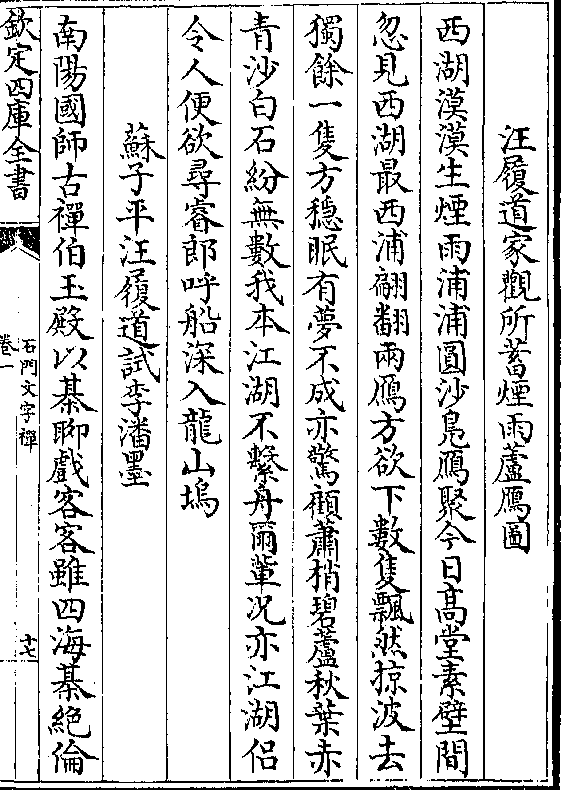 汪履道家觀所蓄煙雨蘆鴈圖
西湖漠漠生煙雨浦浦圓沙鳬鴈聚今日髙堂素壁間
忽見西湖最西浦翩翻兩鴈方欲下數隻飄然掠波去
獨餘一隻方穩眠有夢不成亦驚顧蕭梢碧蘆秋葉赤
青沙白石紛無數我本江湖不繫舟爾輩況亦江湖侣
令人便欲尋睿郎呼船深入龍山塢
蘇子平汪履道試李潘墨
南陽國師古禪伯玉殿以棊聊戲客客雖四海棊絶倫
欽定四庫全書
石門文字禪
卷一
十七